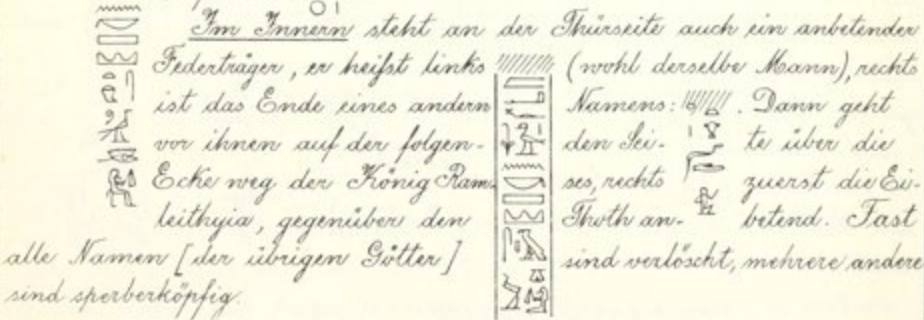 Im Innern steht an der Thürseite auch ein anbetender
Federträger, er heifst links (wohl derselbe Mann), rechts
ist das Ende eines andern Namens: . Dann geht
vor ihnen auf der folgen- den Sei- te über die
Ecke weg der König Ram- ses, rechts zuerst die Ei-
leithyia, gegenüber den Thoth an- betend. Fast
alle Namen [der übrigen Götter] sind verlöscht, mehrere andere
sind sperberköpfig.